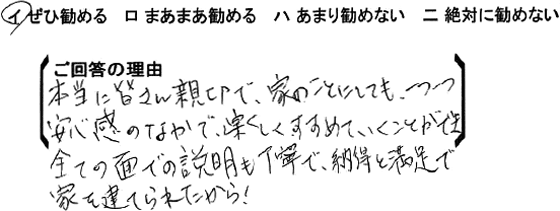 イ ぜひ勧める ロ まあまあ勧める ハ あまり勧めない ニ 絶対に勧めない
ご回答の理由
本当に皆さん親切で、家のことにしても、一つ一つ
安心感のなかで、楽しくすすめていくことができ
全ての面での説明も丁寧で、納得と満足で
家を建てられたから!